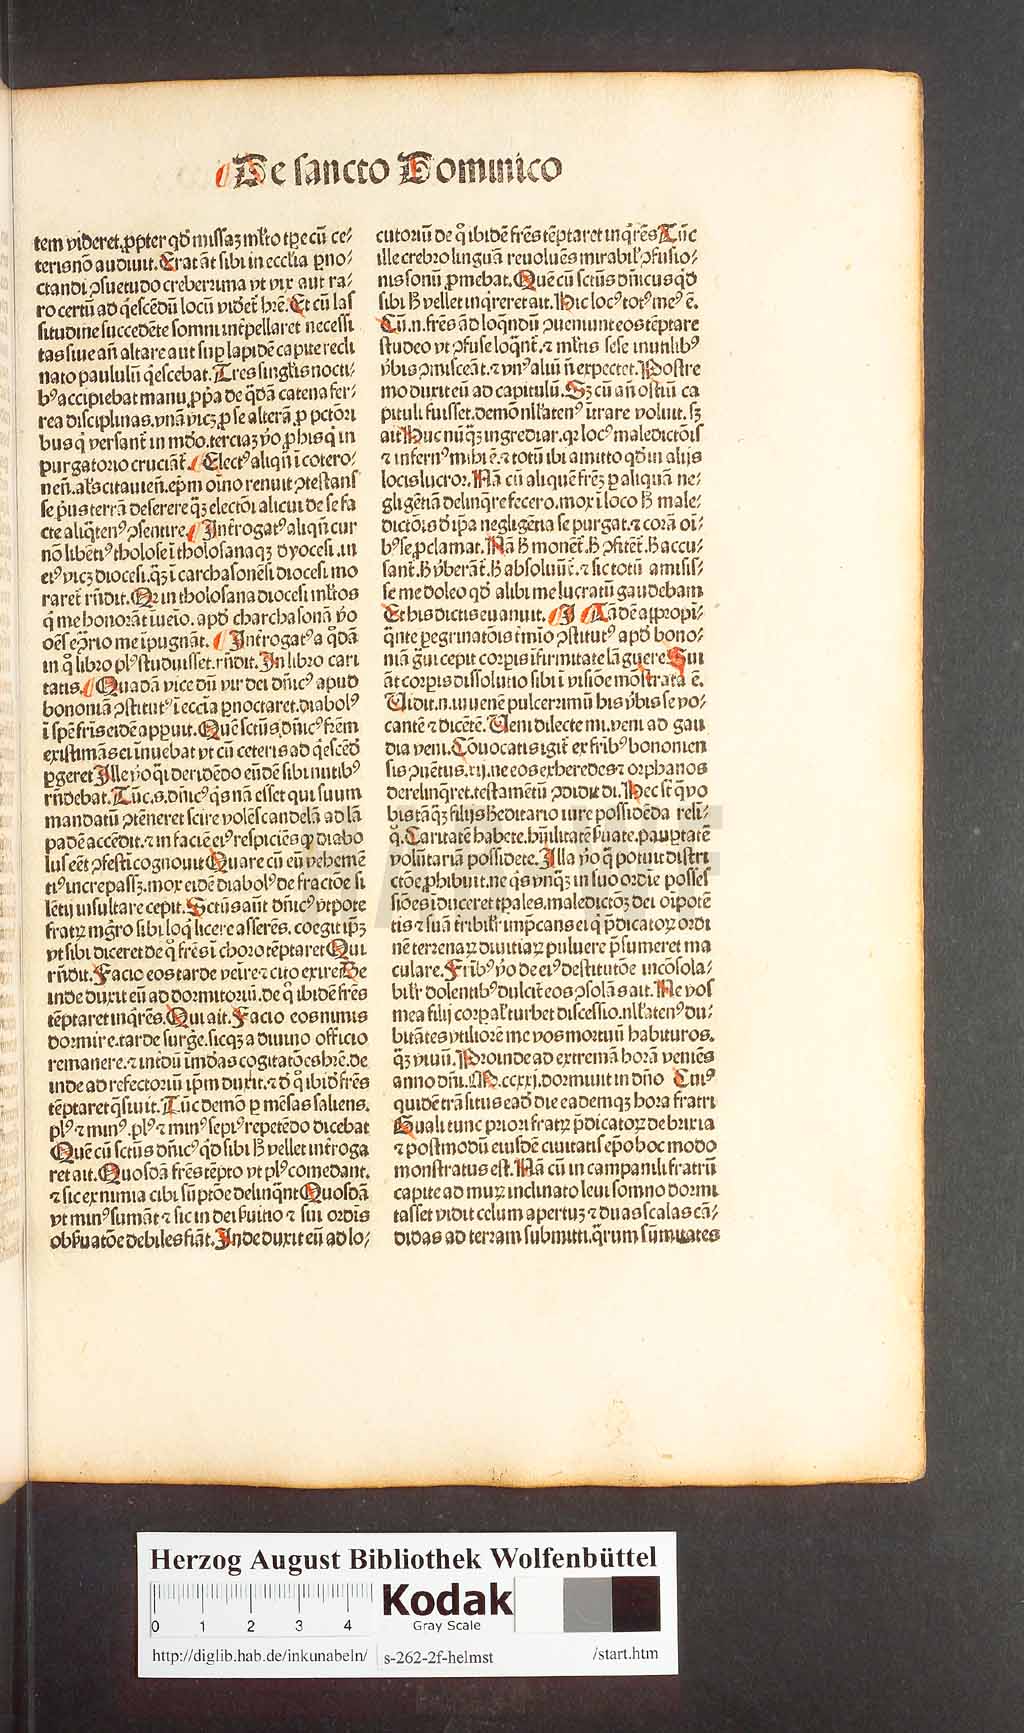 De sancto Dominico
tem videret. ꝓpter qd̛ missaꝫ ml̛to tꝑe cū ce⸗
teris nō audiuit. Erat āt sibi in eccl̛ia ꝑno⸗
ctandi ꝯsuetudo creberrima vt vix aut ra⸗
ro certū ad q̛escēdū locū vider̛t hr̄e. Et cū las
situdine succedēte somni int̛pellaret necessi
tas siue an̄ altare aut suꝑ lapidē capite recli
nato paululū q̛escebat. Tres singl̛is nocti⸗
bꝰ accipiebat manu ꝓpͣa de q̄dā catena fer⸗
rea disciplinas. vnā vicꝫ ꝓ se alterā ꝓ pctōri
bus q̛ versant̛ in mūdo. terciaꝫ v̛o ꝓ his q̛ in
purgatorio cruciāt̛. Electꝰ aliqn̄ ī cotero⸗
nen̄. al̛s citauien̄. ep̄m oīno renuit ꝯtestans
se pͥus terrā deserere qͣꝫ electōi alicui de se fa
cte aliqͣtenꝰ ꝯsentire. Int̛rogatꝰ aliqn̄ cur
nō libētiꝰ tholose ī tholosanaqꝫ dyocesi. in
eiꝰ vicꝫ diocesi. qͣꝫ ī carchasonēsi diocesi mo
raret̛ rn̄dit. Qꝛ in tholosana diocesi ml̛tos
q̛ me honorāt īuēio. apd̛ charchasonā v̛o
oēs eͦꝯrio me īpugnāt. Int̛rogatꝰ a q̛dā
in qͦ libro plꝰ studuisset. rn̄dit. In libro cari
tatis. Quadā vice dū vir dei dn̄icꝰ apud
bononiā ꝯstitutꝰ ī eccl̄ia ꝑnoctaret. diabolꝰ
ī spē fr̄is eidē appuit. Quē sctūs dn̄icꝰ fr̄em
existimās ei innuebat vt cū ceteris ad q̛escēd̛
ꝑgeret Ille v̛o q̛i deridēdo eūdē sibi nutibꝰ
rn̄debat. Tūc. s. dn̄icꝰ q̛s nā esset qui suum
mandatū ꝯtēneret scire volēs candelā ad lā
padē accēdit. ⁊ in faciē eiꝰ respiciēs q̛ diabo
lus eēt ꝯfestī cognouit Quare cū eū vehemē
tiꝰ increpassꝫ. mox eidē diabolꝰ de fractōe si
lētij insultare cepit. Sctūs aūt dn̄icꝰ vtpote
fratꝝ mgr̄o sibi loq̛ licere asserēs. coegit ip̄ꝫ
vt sibi diceret de qͦ fr̄es ī choro tēptaret Qui
rn̄dit. Facio eos tarde veīre ⁊ cito exire De
inde duxit eū ad dormitoriū. de qͦ ibidē fr̄es
tēptaret inq̛rēs. Qui ait. Facio eos nimis
dormire. tarde surge̛. sicqꝫ a diuino officio
remanere. ⁊ int̛dū īmūdas cogitatōes hr̄e. de
inde ad refectoriū ip̄m duxit. ⁊ d̛ qͦ ibid̛ fr̄es
tēptaret q̄siuit. Tūc demō ꝑ mēsas saliens.
plꝰ ⁊ minꝰ. plꝰ ⁊ minꝰ sepiꝰ repetēdo dicebat
Quē cū sctūs dn̄icꝰ qͥd sibi h̛ vellet int̛roga
ret ait. Quosdā fr̄es tēpto vt plꝰ comedant.
⁊ sic ex nimia cibi sūptōe delinqͣnt Quosdā
vt minꝰ sumāt ⁊ sic in dei ẜuitio ⁊ sui ordīs
obẜuatōe debiles fiāt. Inde duxit eū ad lo⸗
cutoriū de qͦ ibidē fr̄es tēptaret inq̛rēs Tūc
ille crebro linguā reuoluēs mirabil̛r ꝯfusio⸗
nis sonū ꝓmebat. Quē cū sctūs dn̄icus qͥd
sibi h̛ vellet inq̛reret ait. Hic locꝰ totꝰ meꝰ ē.
Cū. n. fr̄es ad loq̄ndū ꝯueniunt eos tēptare
studeo vt ꝯfuse loqͣnt̛. ⁊ ml̛tis sese inutilibꝰ
v̛bis ꝯmisceāt. ⁊ vnꝰ aliū n̄ expectet. Postre
mo duxit eū ad capitulū. Sꝫ cū an̄ ostiū ca
pituli fuisset. demō nll̛atenꝰ ītrare voluit. sꝫ
ait Huc nūqͣꝫ ingrediar. qꝛ locꝰ maledictōis
⁊ infernꝰ mihi ē. ⁊ totū ibi amitto qd̛ in alijs
locis lucror. Nā cū aliquē fr̄eꝫ ꝑ aliquā ne⸗
gligētiā delinq̛re fecero. mox ī loco h̛ male⸗
dictōis d̛ ip̄a negligētia se purgat. ⁊ corā oī⸗
bꝰ se ꝓclamat. Nā h̛ monēt̛. h̛ ꝯfitēt̛. h̛ accu⸗
sant̛. h̛ v̛berāt̛. h̛ absoluūt̛. ⁊ sic totū amisis⸗
se me doleo qd̛ alibi me lucratū gaudebam
Et his dictis euanuit. Tādē apꝓpī⸗
qͣnte ꝑegrinatōis t̛mīo ꝯstitutꝰ apd̛ bono⸗
niā gͣui cepit corꝑis īfirmitate lāguere Sui
āt corꝑis dissolutio sibi ī visiōe mōstrata ē.
Vidit. n. iuuenē pulcerrimū his v̛bis se vo⸗
cantē ⁊ dicētē. Veni dilecte mi. veni ad gau
dia veni. Cōuocatis igit̛ ex fr̄ibꝰ bononien
sis ꝯuētus. xij. ne eos exheredes ⁊ orphanos
derelinq̛ret. testamētū ꝯdidit di. Hec sūt q̄ vo
bis tāqͣꝫ filijs h̛editario iure possidēda reli⸗
q̛. Caritatē habete. hūilitatē ẜuate. pauꝑtatē
volūtariā possidete. Illa v̛o q̄ potuit distri
ctōe ꝓhibuit. ne q̛s vnqͣꝫ in suo ordīe posses
siōes īduceret tꝑales. maledictōꝫ dei oīpotē
tis ⁊ suā t̛ribil̛r imp̄cans ei q̛ p̄dicatoꝝ ordi
nē terrenaꝝ diuitiaꝝ puluere p̄sumeret ma
culare. Fr̄ibꝰ v̛o de eiꝰ destitutōe incōsola⸗
bil̛r dolentibꝰ dulcit̛ eos ꝯsolās ait. Ne vos
mea filij corꝑal̛ turbet discessio. nll̛atenꝰ du⸗
bitātes vtiliorē me vos mortuū habituros.
qͣꝫ viuū. Proinde ad extremā horā veniēs
anno dn̄i. M. ccxxj. dormiuit in dn̄o Cuiꝰ
quidē trāsitus ead̛ die eademqꝫ hora fratri
Guali tunc priori fratꝝ p̄dicatoꝝ de brixia
⁊ postmodū eiusdē ciuitatis ep̄o hoc modo
monstratus est. Nā cū in campanili fratrū
capite ad muꝝ inclinato leui somno dormi
tasset vidit celum apertuꝫ ⁊ duas scalas cā⸗
didas ad terram submitti. qͣrum sūmitates
Herzog August Bibliothek Wolfenbüttel
0 1 2 3 4
Kodak
Gray Scale
http://diglib.hab.de/inkunabeln/ s-262-2f-helmst /start.htm